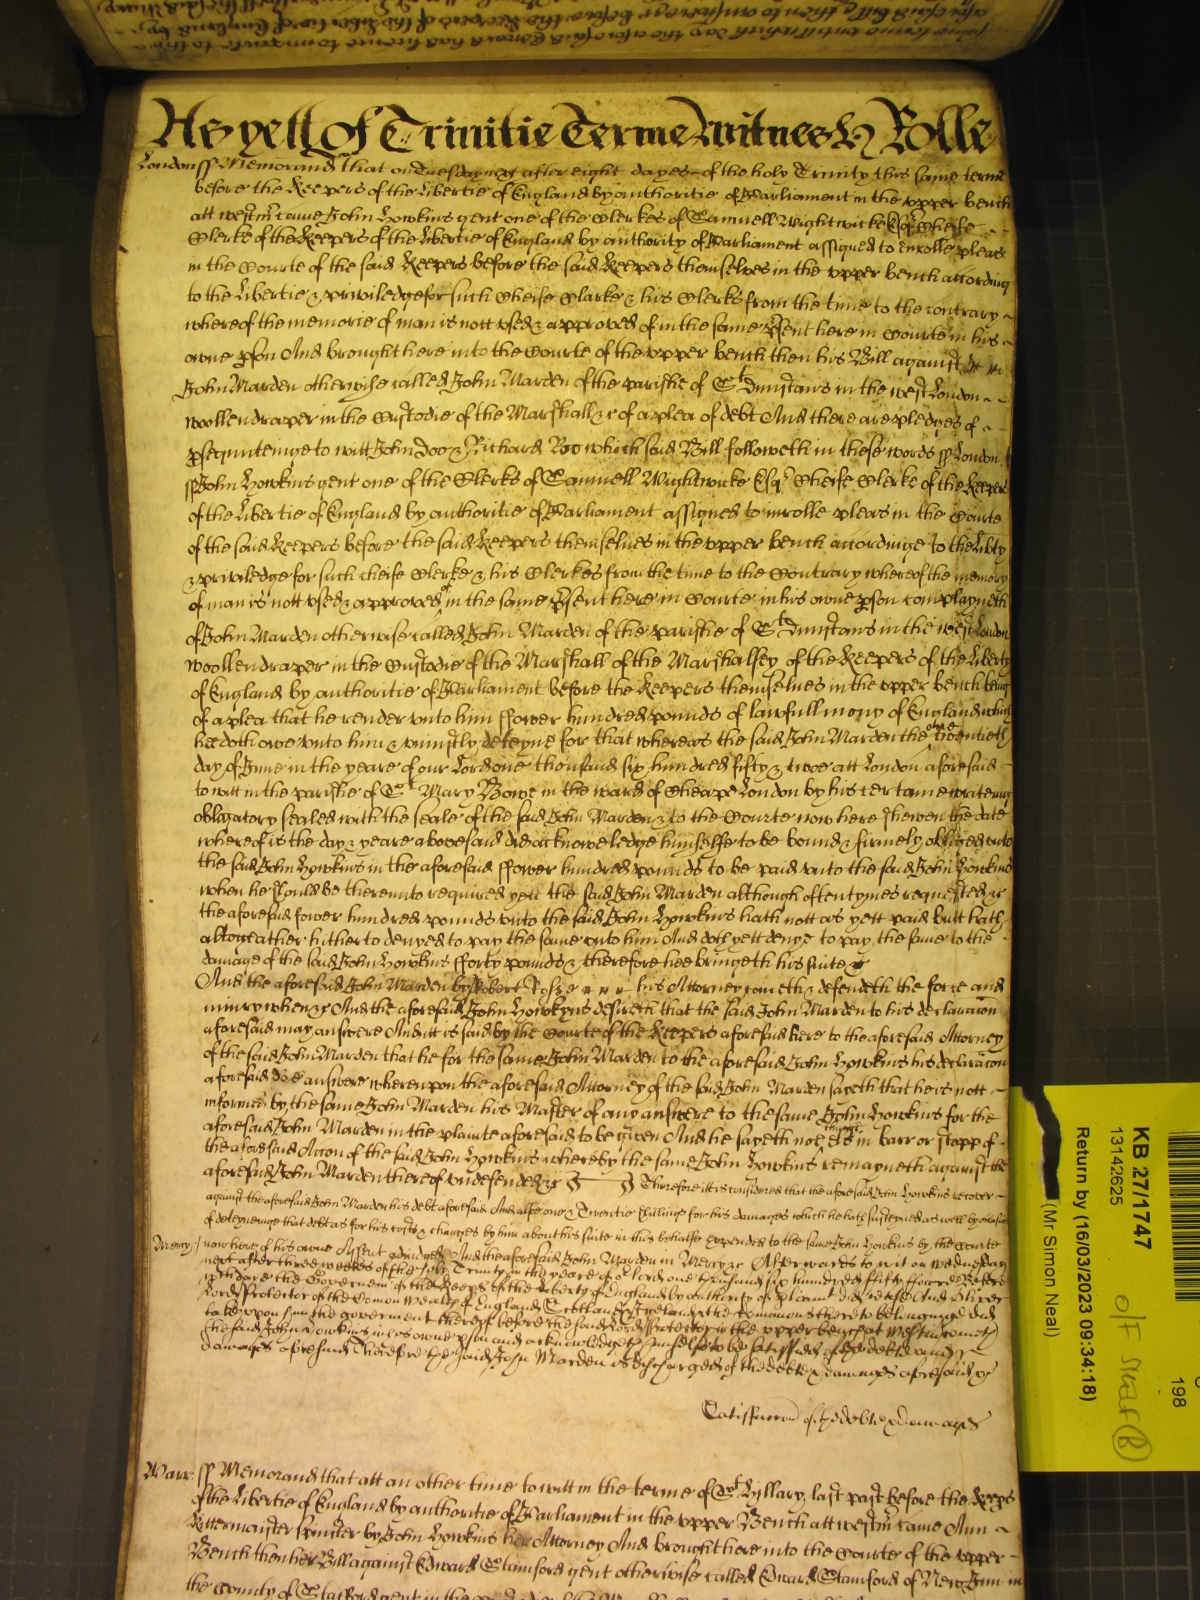 As yett Of Trinitie Terme Witnes H Rolle
London ss Memorand that on Tuesday next after eight dayes of the holy Trinity this same terme
before the Keepers of the Libertie of England by authoritie of Parliament in the upper bench
att Westm came John Howkins gent one of the Clerkes of Samuell Wightwicke Esqr Cheife
Clerke of the Keepers of the Libertie of England by authority of Parliament assigned to enrolle pleas
in the Courte of the said Keepers before the said Keepers themselves in the upper bench according
to the Libertie & priviledge for such Cheife Clarke & his Clerks from the time to the contrary
whereof the memorie of man is nott used & approved of in the same psent here in Courte in his
owne pson And brought here into the Courte of the upper bench then his Bill against
John Marden otherwise called John Marden of the parishe of St Dunstans in the west London
woollendraper in the Custodie of the Marshall &c of a plea of debt And there are pledges of
psequuteinge to witt John Doo & Richard Roo which said Bill followeth in these words ss London
ss John Howkins gent one of the Clerks of Samuell Wightwicke Esqr Cheife Clerke of the Keepers
of the Libertie of England by authoritie of Parliament assigned to inrolle pleas in the Courte
of the said Keepers before the said Keepers themselues in the upper bench accordinge to the Libty
& priviledge for such cheife Clerke & his Clerkes from the time to the Contrary whereof the memory
of man is nott used & approved of in the same psent here in Courte in his owne pson complayneth
of John Marden otherwise called John Marden of the parishe of St Dunstans in the west London
woollendraper in the Custodie of the Marshall of the Marshalsey of the Keepers of the Liberty
of England by authoritie of Parliament before the Keepers themselues in the upper bench being
of a plea that he render unto him ffower hundred pounds of lawfull mony of England which
hee doth owe unto him & uniustly deteyne for that whereas the said John Marden the one & twentieth
day of June in the yeare of our Lord one thousand six hundred fifty & twoe att London aforesaid
to witt in the parishe of St Mary Bowe in the ward of Cheape London by his certaine writeing
obligatory sealed with the seale of the said John Marden & to the Courte now here shewen the date
whereof is the day & yeare abovesaid did acknowledge himselfe to be bound & firmely obliged unto
the said John Howkins in the aforesaid ffower hundred pounds to be paid unto the said John Howkins
when he should be thereunto required yett the said John Marden although oftentymes requested &c
the aforesaid fower hundred pounds unto the said John Howkins hath nott as yett paid butt hath
altogeather hitherto denyed to pay the same unto him And doth yett denye to pay the same to the
damage of the said John Howkins fforty pounds & therefore hee bringeth his suite &c
And the aforesaid John Marden by Robert his Attorney cometh & defendeth the force and
iniury when &c And the aforesaid John Howkyns desireth that the said John Marden to his declaracon
aforesaid may answere And itt is said by the Courte of the Keepers aforesaid here to the aforesaid Attorney
of the said John Marden that he for the same John Marden to the aforesaid John Howkins his declaracon
aforesaid doe answere whereupon the aforesaid Attorney of the said John Marden sayeth that he is nott
informed by the same John Marden his Master of any answere to the same John Howkins for the
aforesaid John Marden in the plainte aforesaid to be given And he sayeth nothing els in barr or stopp of
the aforesaid Accon of the said John Howkins whereby the same John Howkins remayneth against the
aforesaid John Marden thereof undefended &c Therefore itt is considered that the aforesaid John Howkins recover
against the aforesaid John Marden his debt aforesaid And alsoe one & Twentie shillings for his damages which he hath susteyned as well by occasion
of deteyneinge that debt as for his costs & charges by him about his suite in this behalfe expended to the same John Howkins by the Courte
Mercy / now here of his owne Assent adiudged And the aforesaid John Marden in Mercy &c Afterwards to wit on wednesday
next after three weekes of the holy Trinity in the yeare of or Lord one thousand six hundred fifty fower Before
which daye the Government of the Keeps of the liberty of England by authority of pliament did cease And Oliver
Lord Protector of the Comon Wealth of England Scotland & Ireland & the Dominions thereto belonginge did
take upon him the government thereof before the said Lord Protector in the upper bench at Westm cometh
the said John Howkins in his owne pson and acknowledgeth himselfe to be satisfied of the debt and
damages aforesaid Therefore the said John Marden is discharged of the debt & damages aforesaid &c
Satisfaccon of the debt & damages
Warr: ss Memorand that att an other time to witt in the terme of St Hillary last past before the Keeps
of the Libertie of England by authoritie of Parliament in the upper Bench att Westm came Ann
Kittermaister spinster by John Howkins her Attorney And brought here into the Courte of the upper
Bench then her Bill against Edward Stamford gent otherwise called Edward Stamford of New Inn in
the County of Stafford gent in the
KB 27/1747
13142625
Return by (16/03/2023 09:34:18)
(Mr Simon Neal)
O/F
198